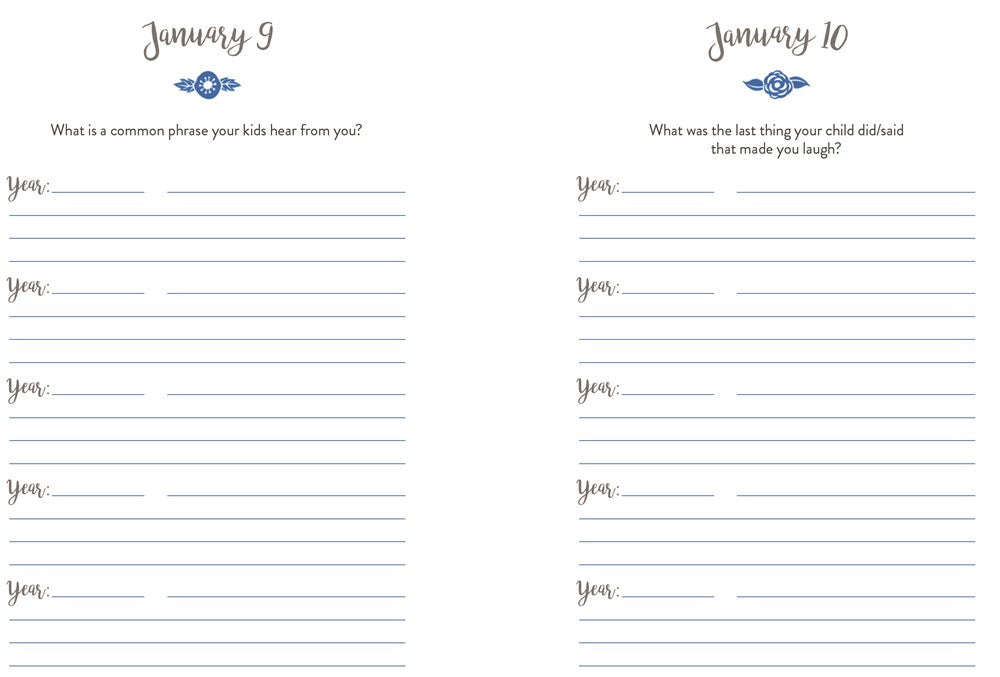 January 9
What is a common phrase your kids hear from you?
Year:
Year:
Year:
Year:
Year:
January 10
What was the last thing your child did/said
that made you laugh?
Year:
Year:
Year:
Year:
Year: